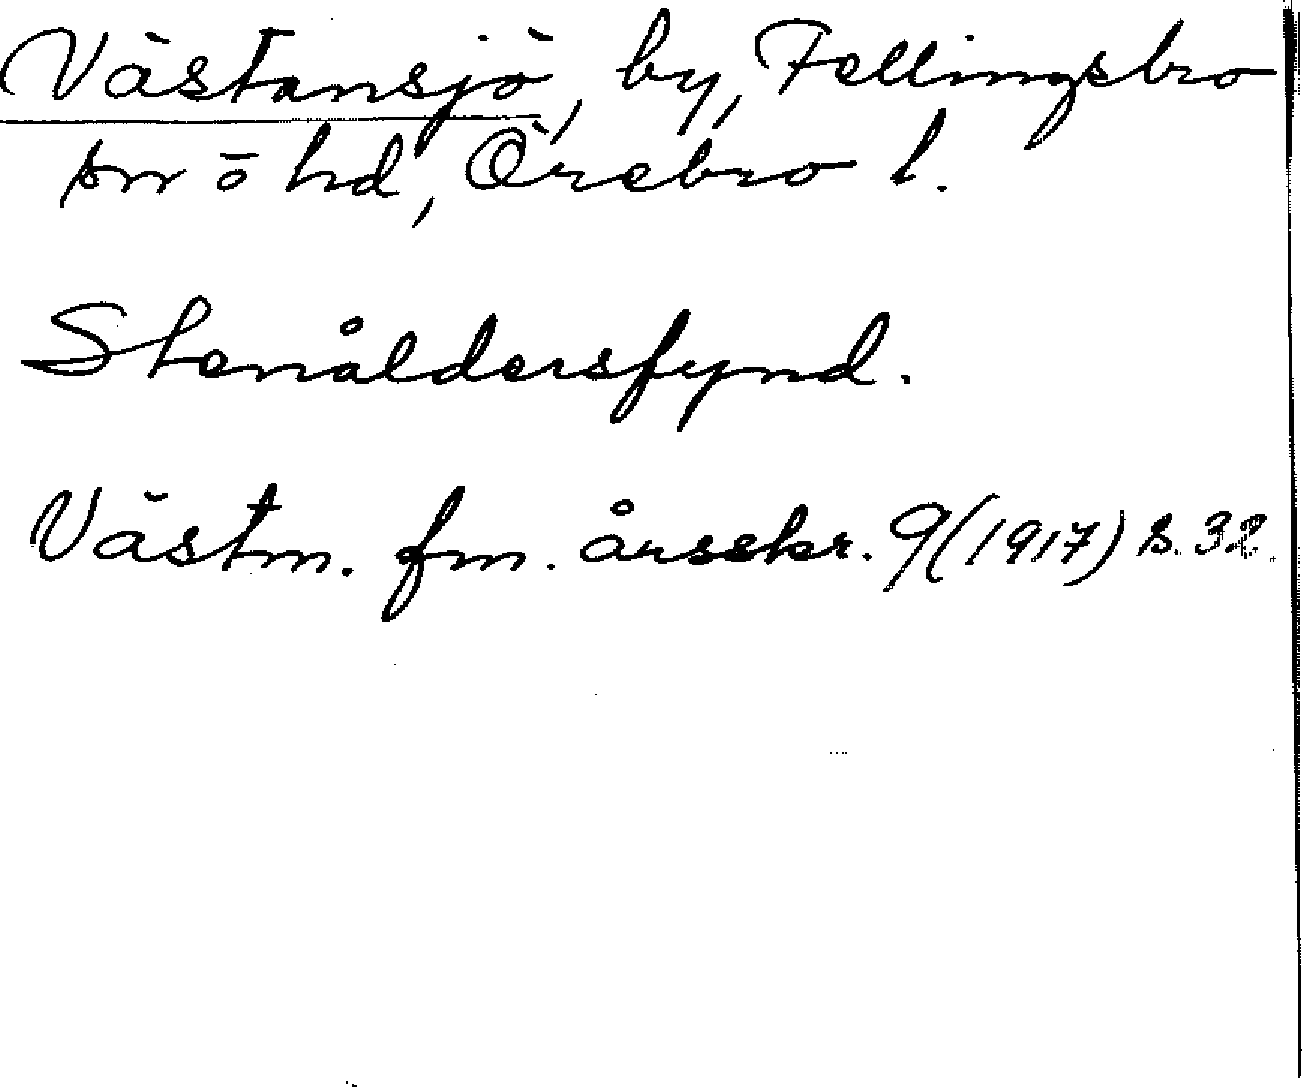 Västansjö, by, Fellingsbro
sn o hd, Örebro l.
Stenåldersfynd.
Västm. fm. årsskr. 9(1917) s. 32.